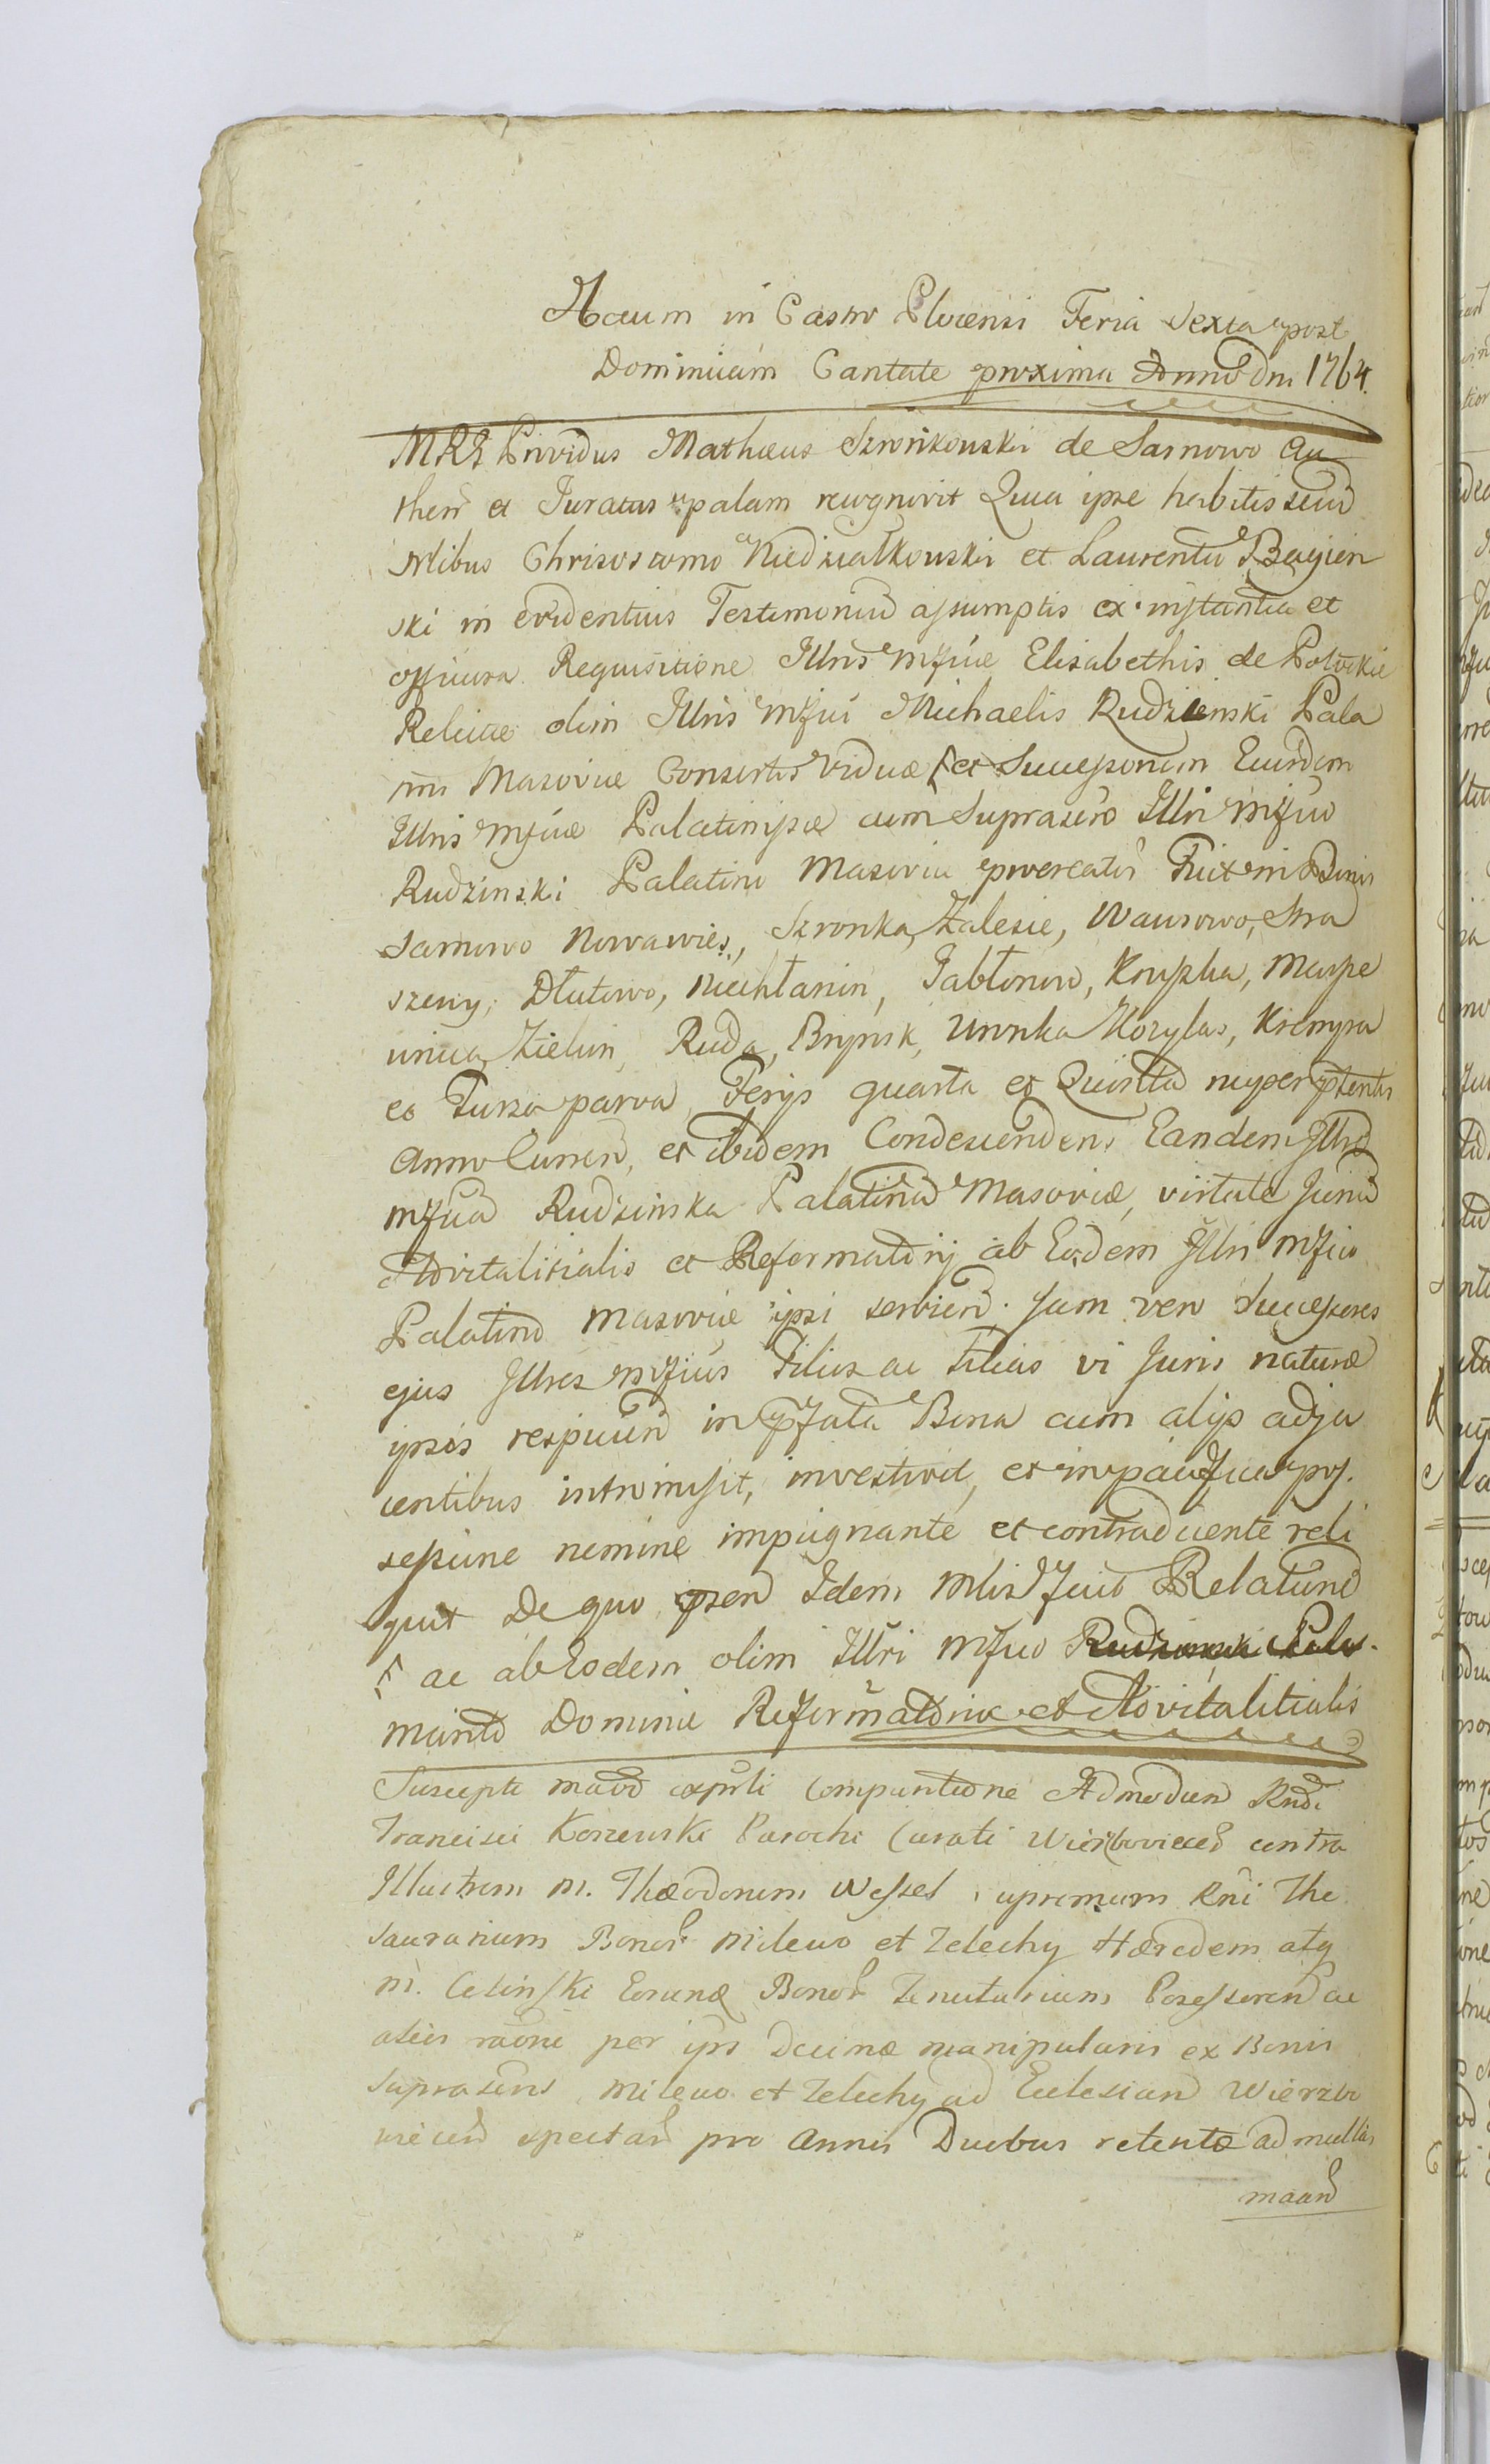 Actum in Castro Plocensi Feria Sexta post
Dominicam Cantate proxima Anno Dni 1764.
MRS Providus Mathæus Szronkowski de Sarnowo Au
then et Juratus palam recognovit Quia ipse habitis secum
Nlibus Chrisostomo Niedziałkowski et Laurentio Bagien
ski in evidentius Testimonium assumptis ex instantia et
officiosa Requisitione Illris Mfcæ Elisabethis de Potockie
Relictæ olim Illris Mfci Michaelis Rudzienski Pala
tini Masoviæ Consortis Viduæ et Successorum Eiusdem
Illris Mfcæ Palatinissæ cum Suprascro Illri Mfco
Rudzinski Palatino Masoviæ procreator Fuit in Bonis
Sarnowo Nowawies, Szronka, Zalesie, Wawrowo, Stra
szewy, Dłutowo, Niechłanin, Jabłonowo, Krupka, Mazpe
unica, Zielun, Ruda, Brynsk, Wronka Kozylas, Krempa
et Turza parva, Ferijs quarta et Quinta nuper ptentis
Anno Curren, et ibidem Condescendens Eandem Illrem
Mfcam Rudzinska Palatinam Masoviæ, virtute Juriu
Advitalitialis et Reformatorij ab Eodem Illri Mfco
Palatino Masoviæ ipsi servien. Jam vero Successores
ejus Illres Mfcos Filios ac Filias vi Juris naturæ
ipsis respicien in pfata Bona cum alijs adja
centibus intromisit, investivit, et in pacifica pos.
sessione nemine impugnante et contradicente reli
quit De quo psen Idem Mlis fecit Relationem
ac ab Eodem olim Illri Mfco Rudzinski Pala
marito Dominii Reformatoriæ et Advitalitialis
Suscepta mand capuli Compuntione Admodum Rndi
Francisci Korzewski Parochi Curati Wierzbovieceñ contra
Illustrem M. Theodorum Wessel supremum Rni The
saurarium Bonor Milewo et Zelechy Hæredem atq
M. Celinski Eorunde Bonor Tenutarium Possessorem ac
alios raone per ips Decimæ manipularis ex Bonis
suprascris Milewo et Zelechy ad Ecclesiam Wierzbo
viecen spectan pro Annis Duobus retentæ ad mullas
maan